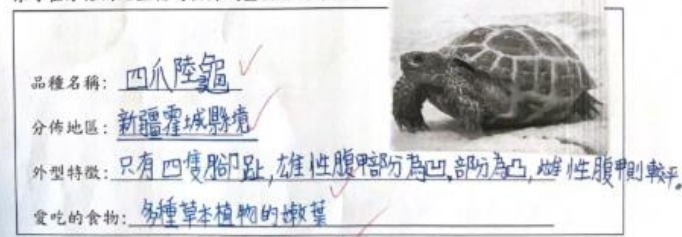 品種名稱：四爪陸龜
分佈地區：新疆霍城縣境
外型特徵：只有四隻腳趾，雄性腹甲部分為凹，部分為凸，雌性腹甲則較平。
愛吃的食物：多種草本植物的嫩葉